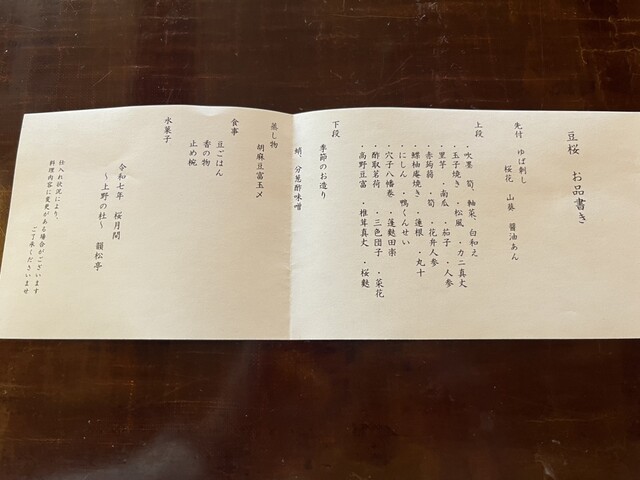 豆桜　お品書き
先付　ゆば刺し
桜花　山葵　醤油あん
上段
・吹墨　筍、軸菜、白和え
・玉子焼き　・松風　・カニ真丈
・里芋　・南瓜　・茄子　・人参
・赤蒟蒻　・筍　・花弁人参
・鰆柚庵焼き　・蓮根　・丸十
・にしん　・鴨くんせい
・穴子八幡巻　・蓬麩田楽
・酢取茗荷　・三色団子　・菜花
・高野豆富　・椎茸真丈　・桜麩
下段
季節のお造り
蛸、分葱酢味噌
蒸し物
胡麻豆富玉〆
食事
豆ごはん
香の物
止め椀
水菓子
令和七年　桜月間
～上野の杜～　韻松亭
仕入れ状況により、
料理内容に変更がある場合がございます
ご了承くださいませ